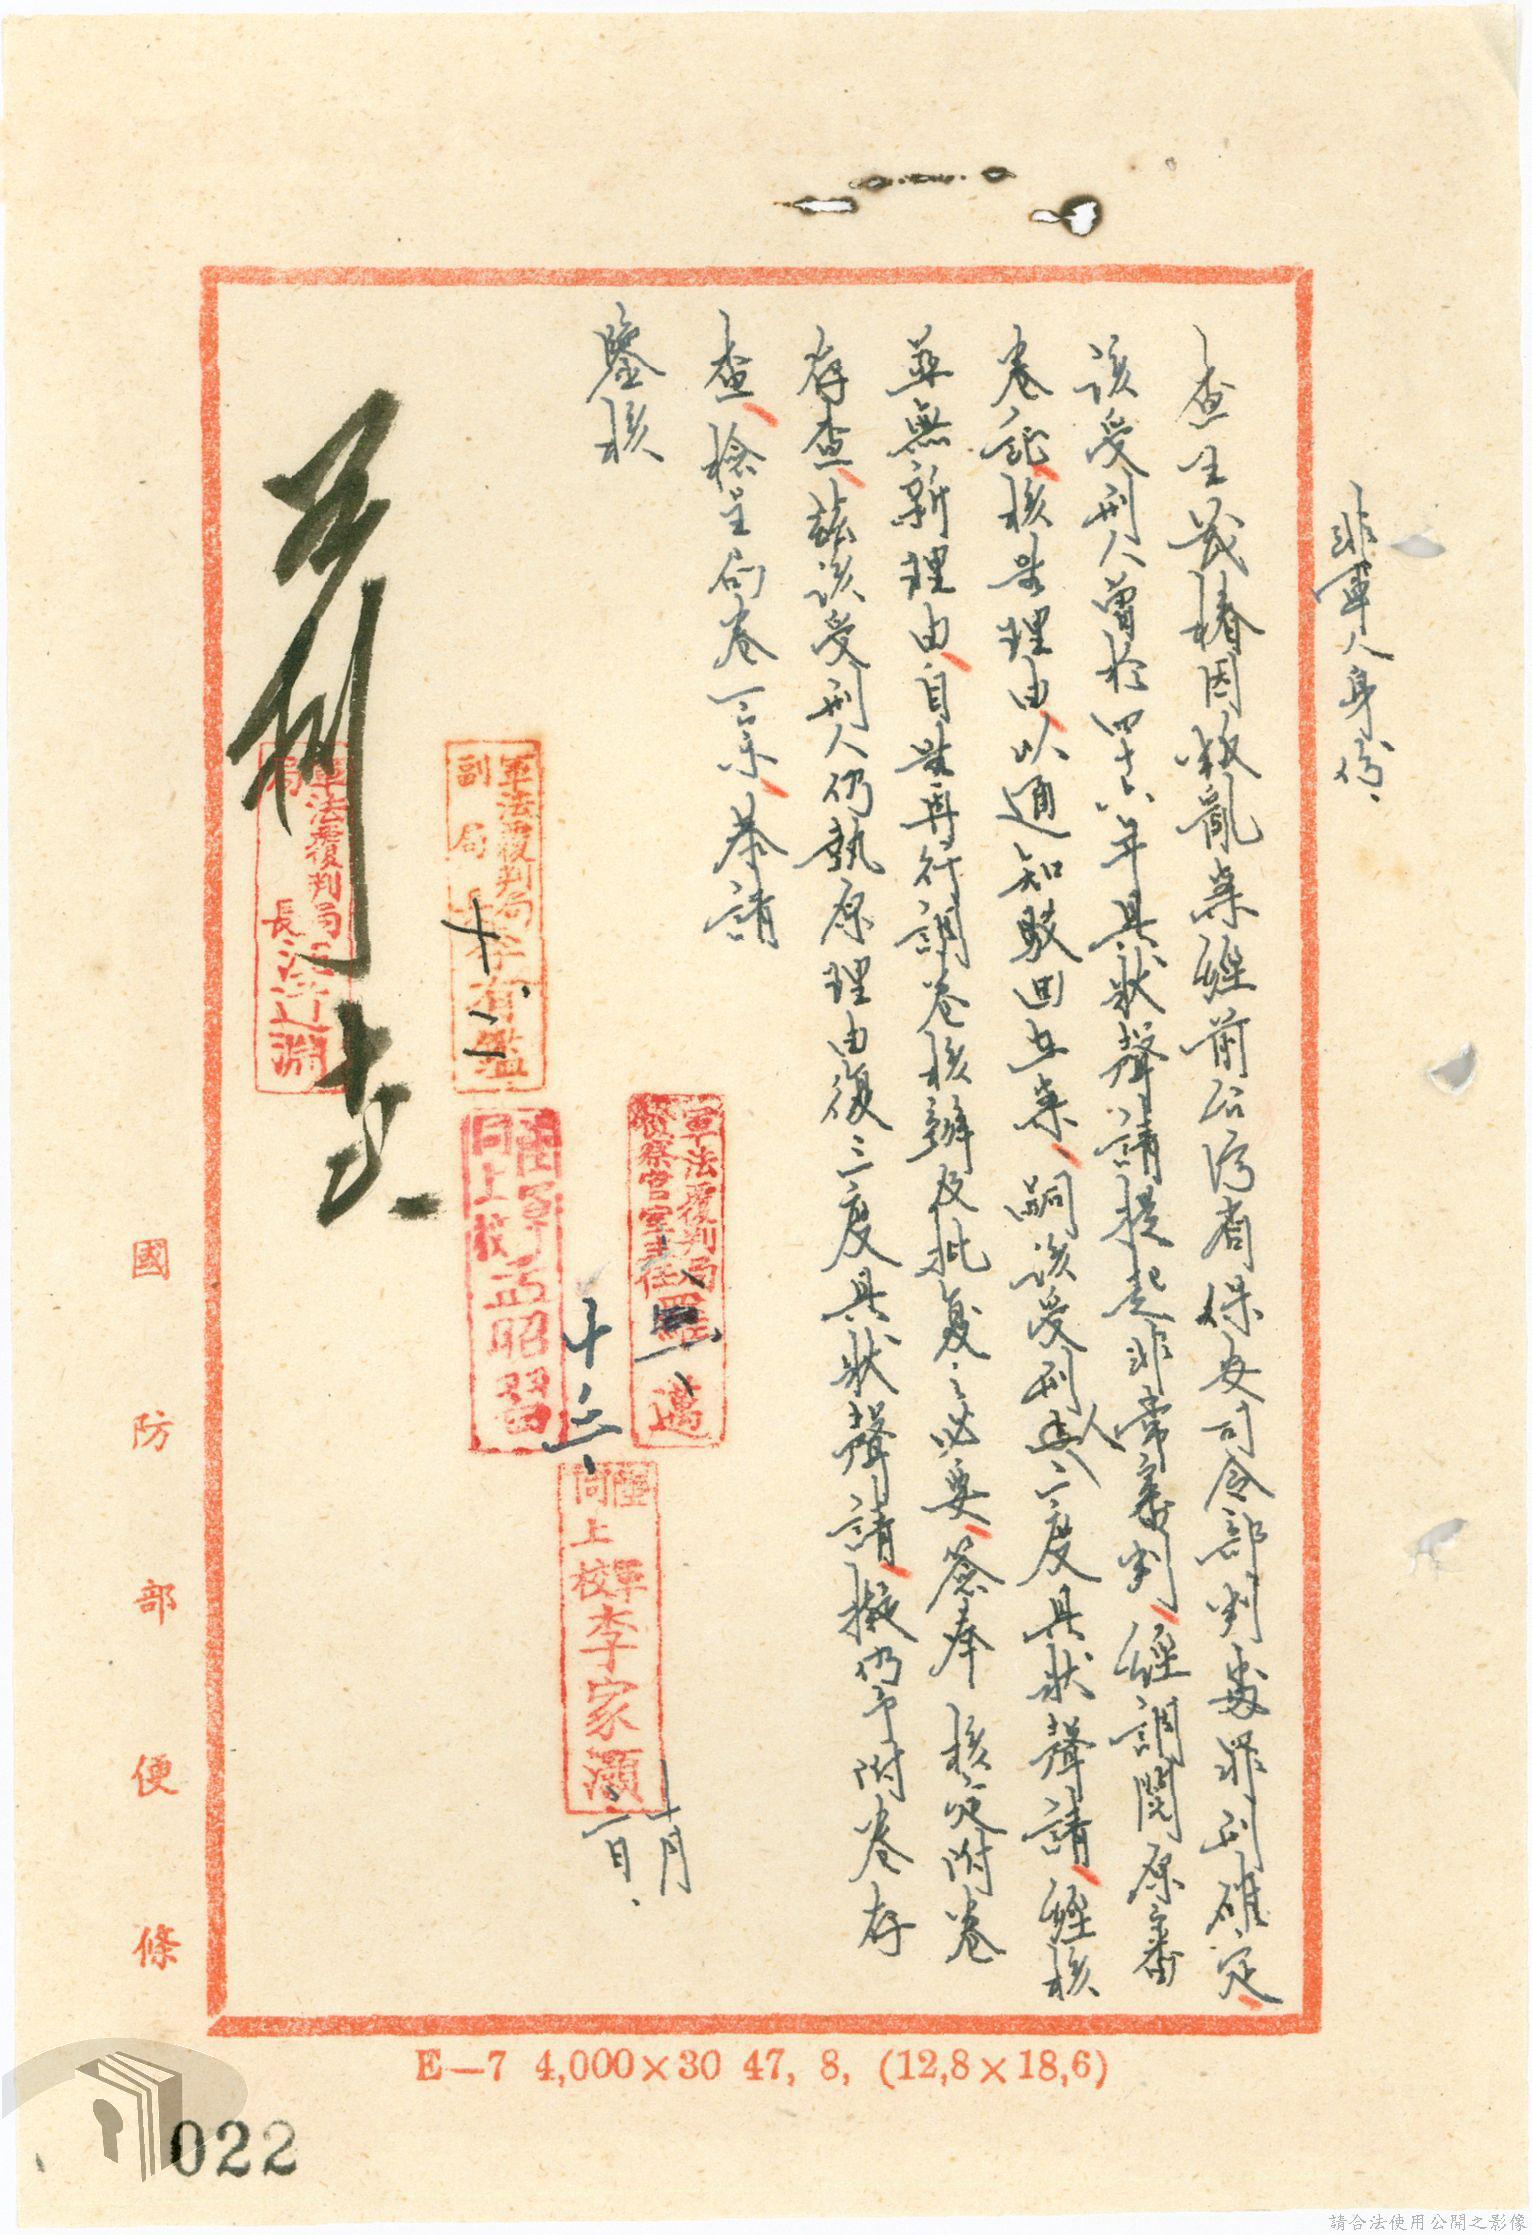 非軍人身份.
查王茂椿因叛亂案經前台灣省保安司令部判處罪刑確定
該受刑人曾於四十六年具狀聲請提起非常審判經調閱原審
卷証核無理由以通知駁回在案嗣該受刑人二度具狀聲請經核
並無新理由自無再行調卷核辦及批復之必要簽奉 核定附卷
存查茲該受刑人仍執原理由復三度具狀聲請擬仍予附卷存
查檢呈局卷一宗恭請
鑒核
十月
一日.
陸軍
同上校李家灝
軍法覆判局
檢察官室主任羅邁
陸軍
同上校 昭
十三
軍法覆判局
副局長李有鑑
十、二
軍法覆判局
局長汪道淵
國防部便條
E—7 4,000×30 47, 8, (12,8×18,6)
022
請合法使用公開之影像